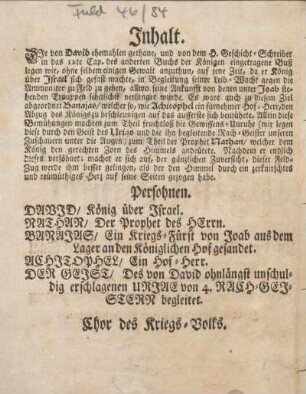 Fuld 46/84
Inhalt.
Die von David ehemahlen gethane, und von dem H. Geschicht-Schreiber
in das 12te Cap. des anderten Buchs der Königen eingetragene Buß
legen wir, ohne selben einigen Gewalt anzuthun, auf jene Zeit, da er König
über Israel sich gefast machte, in Begleitung seiner Leib-Wacht gegen die
Ammoniter zu Feld zu gehen, allwo seine Ankunft von denen unter Joab ste-
henden Truppen sehnlichst verlanget wurde. Es ware auch zu diesem Ziel
abgeordnet Banajas/ welcher so, wie Achitophel ein fürnehmer Hof-Herr, den
Abzug des Königs zu beschleunigen auf das äusserste sich bemühete. Allein diese
Bemühungen machten zum Theil fruchtloß die Gewissens-Unruhe (wir legen
diese durch den Geist des Urias und die ihn begleitende Rach-Geister unseren
Zuschauern unter die Augen) zum Theil der Prophet Nathan/ welcher dem
König den gerechten Zorn des Himmels andeutete. Nachdem er endlich
diesen versöhnet: machet er sich auf, der gänzlichen Zuversicht, dieser Feld-
Zug werde ihm besser gelingen, als der den Himmel durch ein zerknirschtes
und reumüthiges Herz auf seine Seiten gezogen habe.
Persohnen.
DAVID/ König über Israel.
NATHAN/ Der Prophet des HErrn.
BANAJAS/ Ein Kriegs-Fürst von Joab aus dem
Lager an den Königlichen Hof gesandet.
ACHITOPHEL/ Ein Hof-Herr.
DER GEIST/ Des von David ohnlängst unschul-
dig erschlagenen URIAE von 4. RACH-GEI-
STERN begleitet.
Chor des Kriegs-Volks.